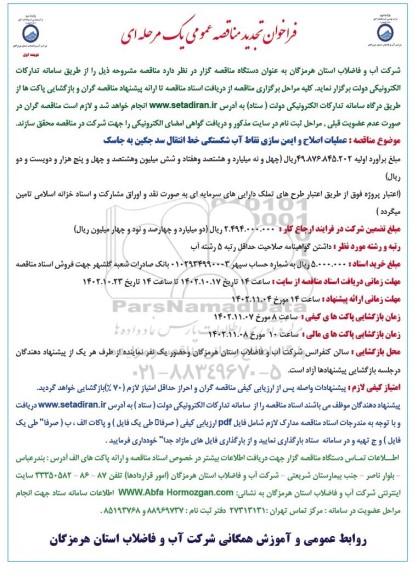 فراخوان تجدید مناقصه عمومی یک مرحله ای
نوبت اول
شرکت آب و فاضلاب استان هرمزگان به عنوان دستگاه مناقصه گزار در نظر دارد مناقصه مشروحه ذیل را از طریق سامانه تدارکات
الکترونیکی دولت برگزار نماید. کلیه مراحل برگزاری مناقصه از دریافت اسناد مناقصه تا ارائه پیشنهاد مناقصه گران و بازگشایی پاکت ها از
طریق درگاه سامانه تدارکات الکترونیکی دولت ( ستاد) به آدرس www.setadiran.ir انجام خواهد شد و لازم است مناقصه گران در
صورت عدم عضویت قبلی ، مراحل ثبت نام در سایت مذکور و دریافت گواهی امضای الکترونیکی را جهت شرکت در مناقصه محقق سازند.
موضوع مناقصه : عملیات اصلاح و ایمن سازی نقاط آب شکستگی خط انتقال سد جگین به جاسک
مبلغ برآورد اولیه ۴۹.۸۷۶.۸۴۵.۲۰۲ریال (چهل و نه میلیارد و هشتصد وهفتاد و شش میلیون وهشتصد و چهل و پنج هزار و دویست و دو
ریال)
(اعتبار پروژه فوق از طریق اعتبار طرح های تملک دارایی های سرمایه ای به صورت نقد و اوراق مشارکت و اسناد خزانه اسلامی تامین
میگردد )
مبلغ تضمین شرکت در فرایند ارجاع کار : ۲.۴۹۴.۰۰۰.۰۰۰ ریال (دو میلیارد و چهارصد و نود و چهار میلیون ریال)
رتبه و رشته مورد نظر : داشتن گواهینامه صلاحیت حداقل رتبه ۵ رشته آب
مبلغ خرید اسناد : ۵.۰۰۰.۰۰۰ ریال به شماره حساب سپهر ۰۱۰۲۹۳۴۹۹۰۰۰۳ بانک صادرات شعبه گلشهر جهت فروش اسناد مناقصه
مهلت زمانی دریافت اسناد مناقصه از سایت : ساعت ۱۴ تاریخ ۱۴۰۲.۱۰.۱۷ تا ساعت ۱۴ تاریخ ۱۴۰۲.۱۰.۲۳
مهلت زمانی ارائه پیشنهاد : ساعت ۱۴ مورخ ۱۴۰۲.۱۱.۰۴
زمان بازگشایی پاکت ها ی کیفی : ساعت ۸ مورخ ۱۴۰۲.۱۱.۰۷
زمان بازگشایی پاکت ها ی مالی : ساعت ۱۰ مورخ ۱۴۰۲.۱۱.۰۸
محل بازگشایی : سالن کنفرانس شرکت آب و فاضلاب استان هرمزگان وحضور یک نفر نماینده از طرف هر یک از پیشنهاد دهندگان
درجلسه بازگشایی پیشنهادها آزاد است.
امتیاز کیفی لازم : پیشنهادات واصله پس از ارزیابی کیفی مناقصه گران و احراز حداقل امتیاز لازم (۷۰ %)بازگشایی خواهد گردید.
پیشنهاد دهندگان موظف می باشند اسناد مناقصه را از سامانه تدارکات الکترونیکی دولت ( ستاد ) به آدرس www.setadiran.ir دریافت
و با توجه به مندرجات اسناد مناقصه مدارک لازم شامل فایل pdf ارزیابی کیفی ( صرفاً طی یک فایل ) و پاکات الف ، ب ( صرفا" طی یک
فایل ) و ج تهیه و در سامانه ستاد بارگذاری نمایید و از بارگذاری فایل های مازاد جدا" خودداری فرمایید .
اطــلاعات تمــاس دستگاه مناقصه گزار جهت دریافت اطلاعات بیشتر در خصوص اسناد مناقصه و ارائه پاکت های الف آدرس : بندرعباس
– بلوار ناصر – جنب بیمارستان شریعتی – شرکت آب و فاضلاب استان هرمزگان (امور قراردادها) تلفن ۸۷ – ۸۶ – ۳۳۳۵۰۵۸۲ سایت
اینترنتی شرکت آب و فاضلاب استان هرمزگان به نشانی: WWW.Abfa Hormozgan.com اطلاعات سامانه ستاد جهت انجام
مراحل عضویت در سامانه : مرکز تماس تهران :۲۷۳۱۳۱۳۱ دفتر ثبت نام : ۸۸۹۶۹۷۳۷ و ۸۵۱۹۳۷۶۸ .
روابط عمومی و آموزش همگانی شرکت آب و فاضلاب استان هرمزگان
ParsNamadData
۰۲۱-۸۸۳۴۹۶۷۰-۵